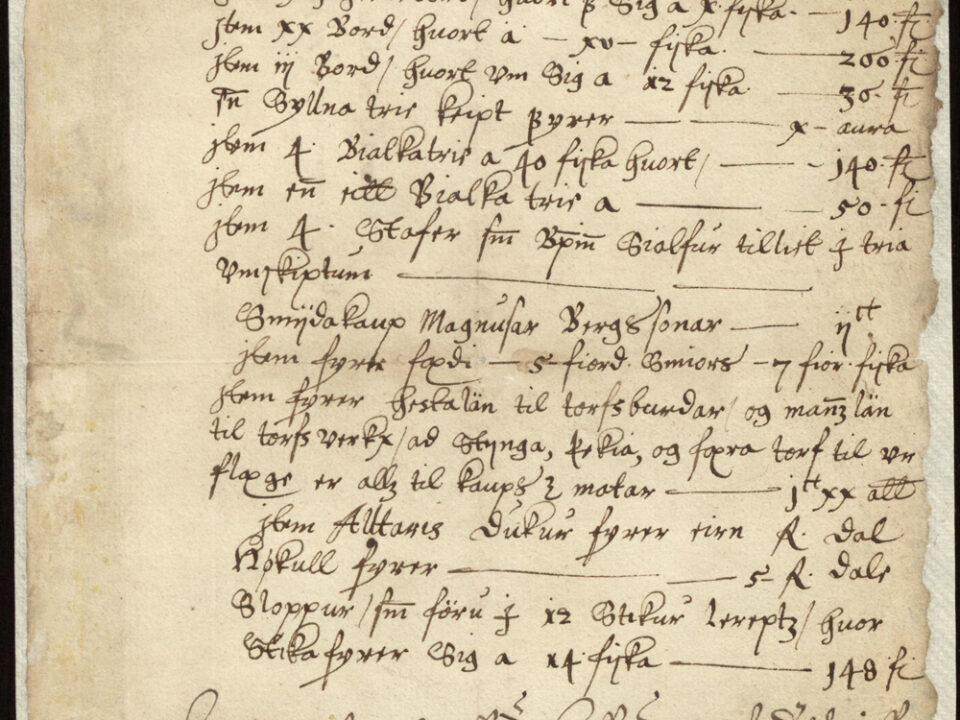 huort þ Sig a x fiska — 140 fi
Jtem xx Bord / huort a — xv — fiska — 200 fi
Jtem iij Bord / huort vm Sig a 12 fiska — 36 fi
Syllna trie keipt fyrer — x — aura
Jtem 4 Bialkatrie a 40 fiska huort / — 140 fi
Jtem en̄ eitt Bialka trie a — 50 fi
Jtem 4 Stafer sm̄ Sialfur tilliet j tria
vmskiptum —
Smijdakaup Magnusar Bergssonar — ij tt
Jtem fyrer fædi — 5 fiord. Smiors — 7 fior. fiska
Jtem fyrer hestalän til torfsburdar / og man̄z län
til torfsverkx / ad Stynga, þekia, og færa torf til vr
flæge er allz til kaups z matar — j tt xx all
Jtem Alltaris dukur fyrer eirn R. dal
Hökull fyrer — 5 R. dale
Sloppur / sm̄ föru j 12 Stikur lereptz / huor
Stika fyrer Sig a 14 fiska — 148 fi